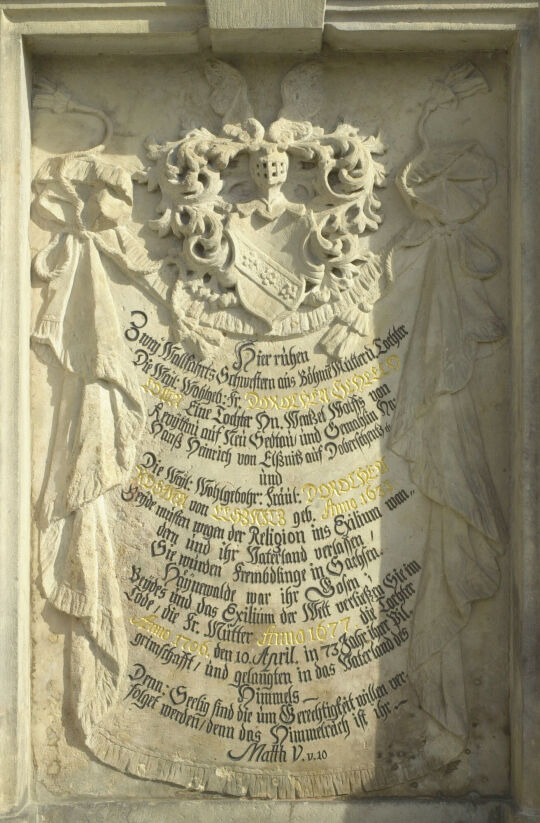 Hier ruhen
Zwey Wallfahrts-Schwestern aus Böhmē Mutter ū. Tochter
Die Weil: Wohlgeb: Fr. DOROTHEA
Eine Tochter Hn. Wentzel von
auf Neü und Gemahlin Hn:
Hanß Heinrich von Elßnitz auf
und
Die Weil: Wohlgebohr: Fräul: DOROTHEA
von geb. Anno
Beyde musten wegen der Religion ins Exilium wan-
dern und ihr Vaterland verlassen/
Sie wurden Frembdlinge in Sachsen.
Haynewalde war ihr Gosen/
Beydes und das Exilium der Welt verließen Sie im
Tode/ die Fr. Mutter Anno 1677. die Tochter
Anno 1706. den 10. April. in 73 Jahr ihrer Pil-
grimschafft/ und gelangten in das Vaterland des
Himmels
Denn: Seelig sind die um Gerechtigkeit willen ver-
folget werden/ denn das Himmelreich ist ihr.
Matth V. v. 10